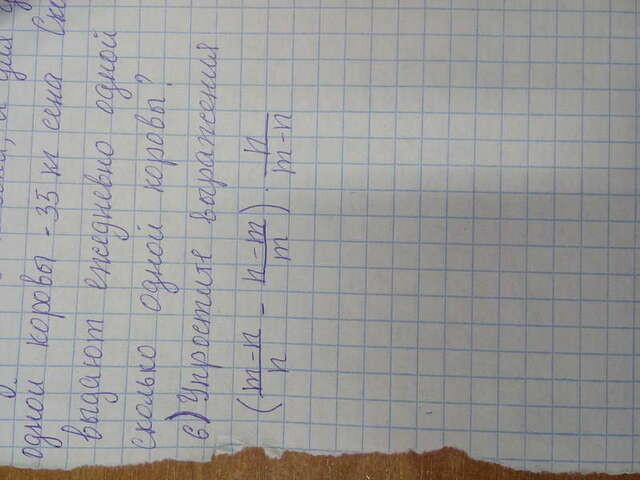 одной коровы - 35 кг сена
выдают ежедневно одной
сколько одной коровы?
6) Упростите выражения
(\frac{m-n}{n} - \frac{n-m}{m}) · \frac{n}{m-n}